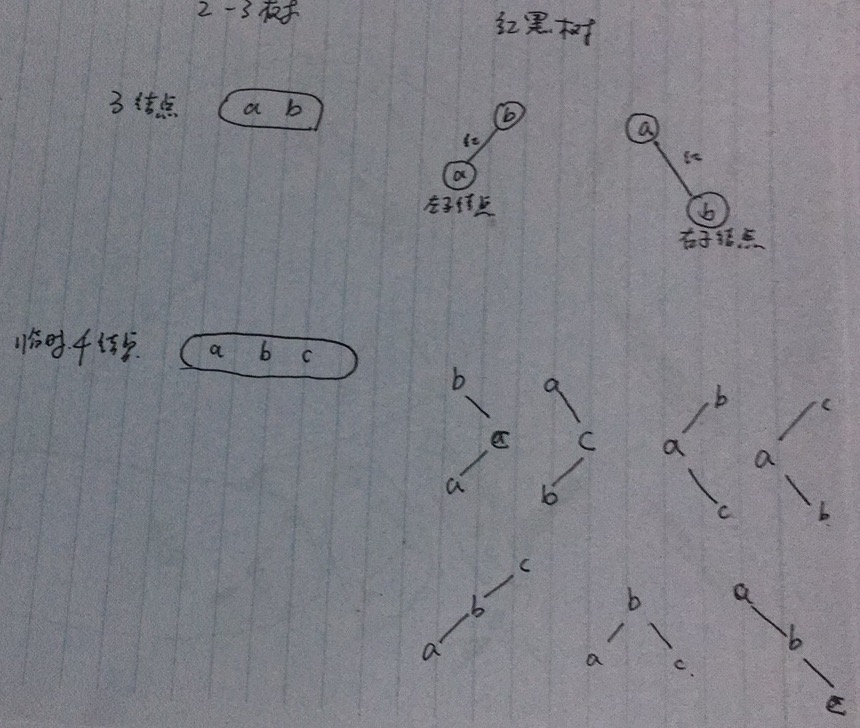 2-3树
红黑树
3结点 a b
b
红
a
左子结点
a
红
b
右子结点
临时4结点 a b c
b
c
a
a
c
b
b
a
c
c
a
b
c
b
a
b
a c
a
b
c